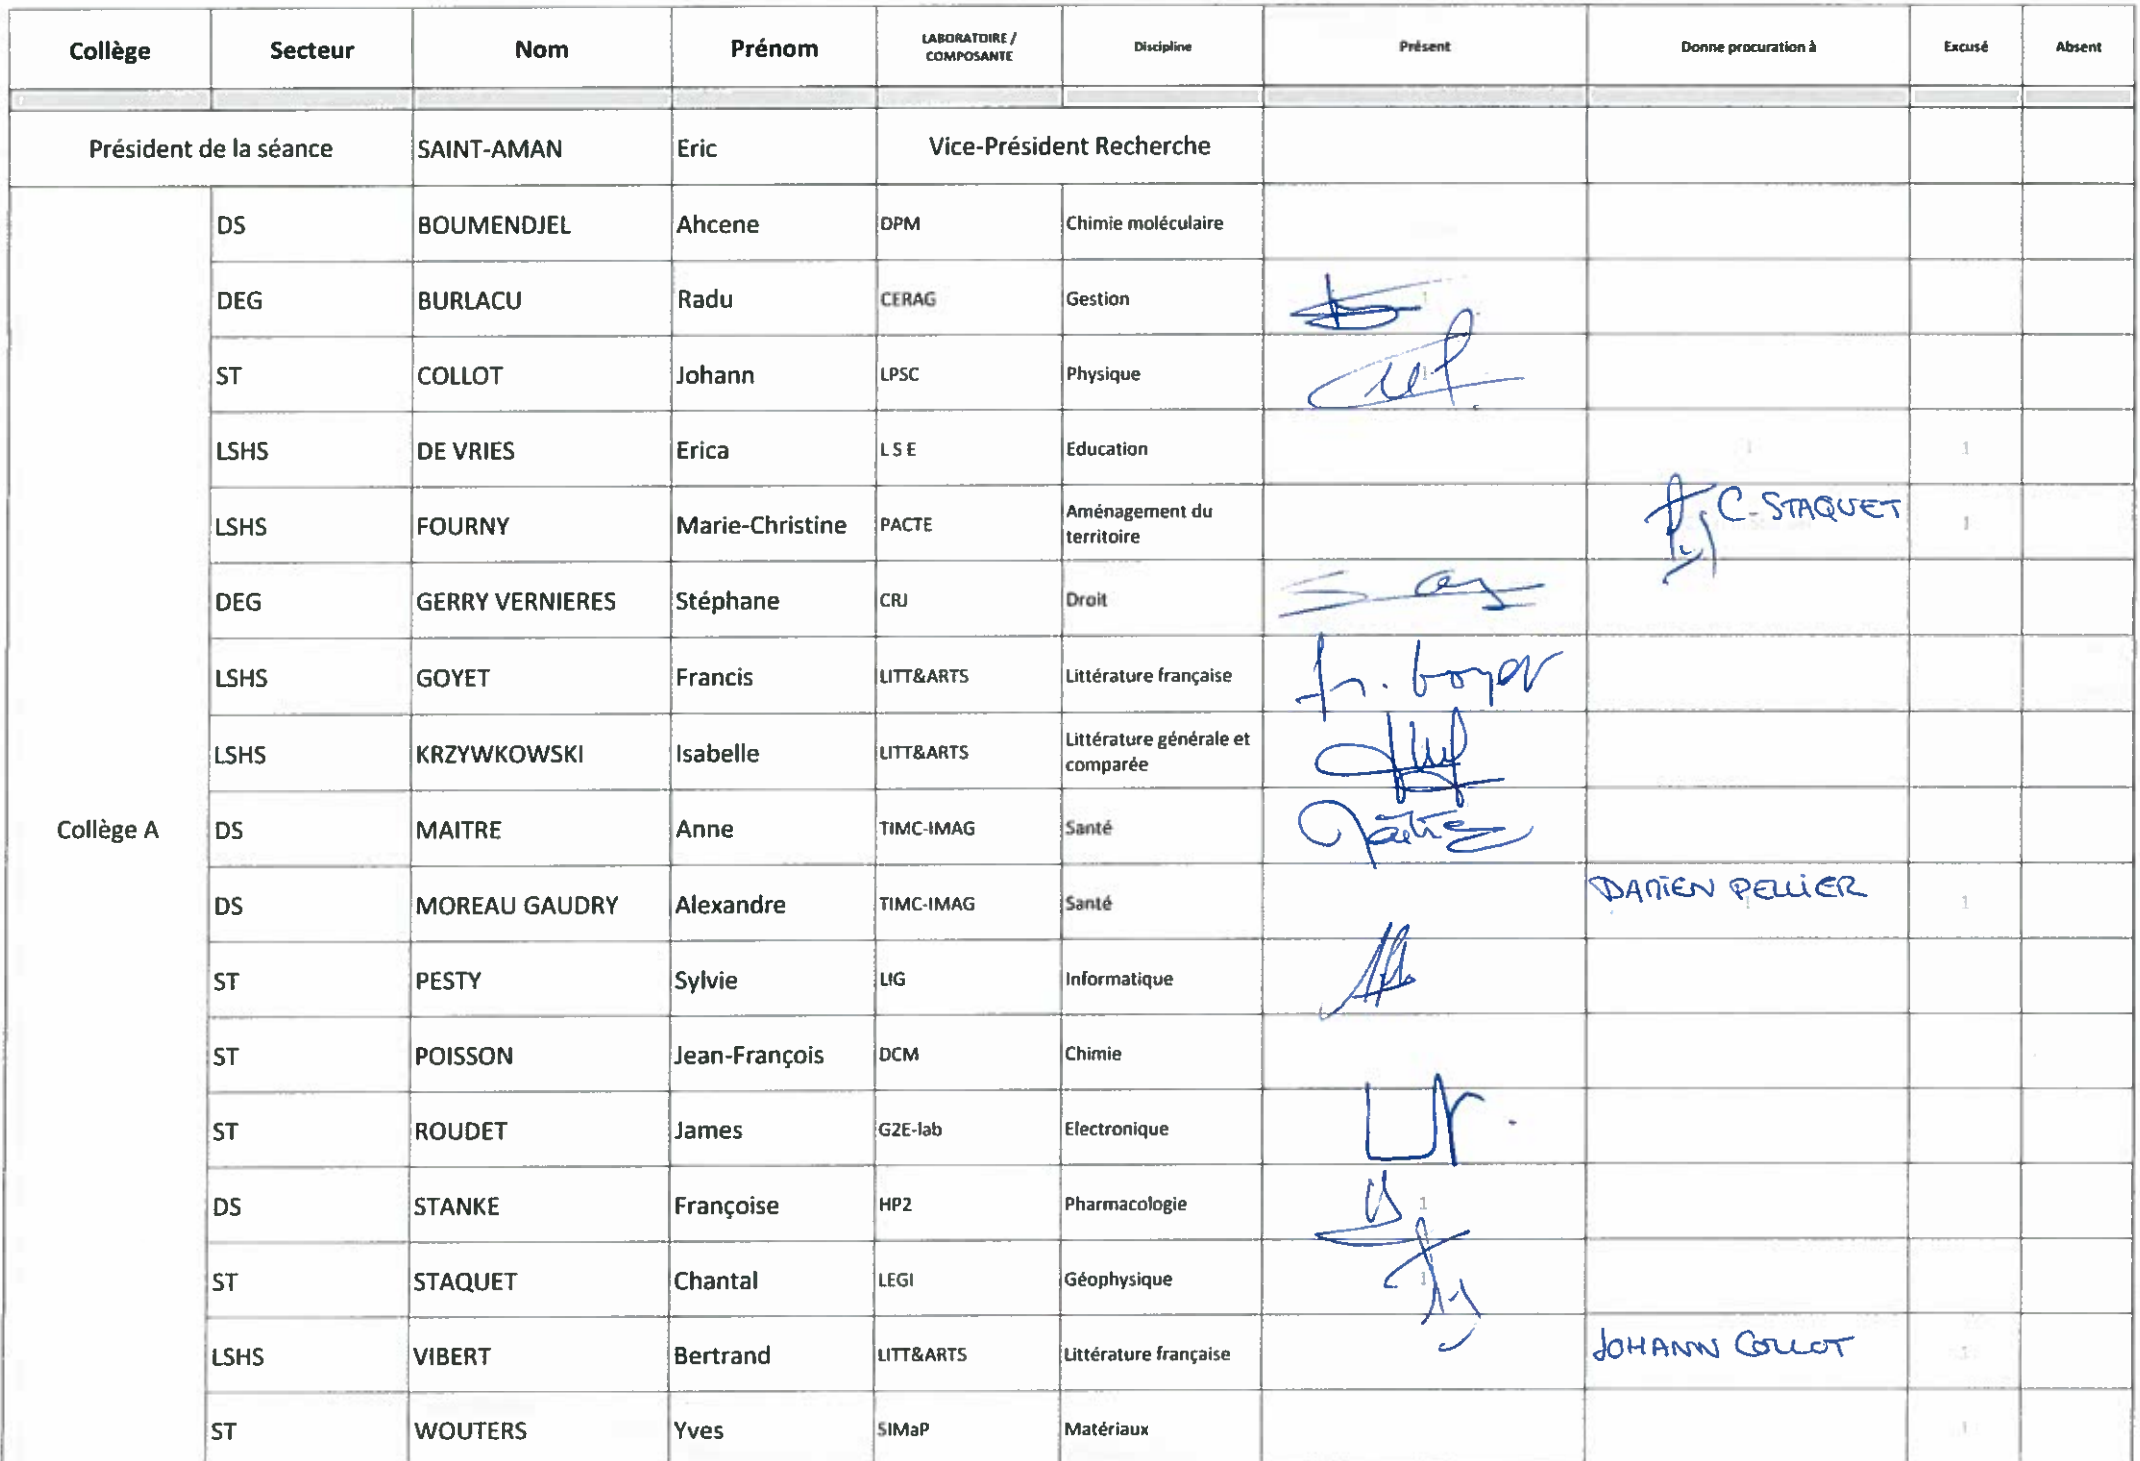 Collège Secteur Nom Prénom LABORATOIRE / COMPOSANTE Discipline Présent Donne procuration à Excusé Absent
Président de la séance SAINT-AMAN Eric Vice-Président Recherche
Collège A
DS BOUMENDJEL Ahcene DPM Chimie moléculaire
DEG BURLACU Radu CERAG Gestion 1
ST COLLOT Johann LPSC Physique 1
LSHS DE VRIES Erica L S E Education 1 1
LSHS FOURNY Marie-Christine PACTE Aménagement du territoire C. STAQUET 1
DEG GERRY VERNIERES Stéphane CRJ Droit
LSHS GOYET Francis LITT&ARTS Littérature française fr. Goyet
LSHS KRZYWKOWSKI Isabelle LITT&ARTS Littérature générale et comparée
DS MAITRE Anne TIMC-IMAG Santé
DS MOREAU GAUDRY Alexandre TIMC-IMAG Santé DAMIEN PELLIER 1
ST PESTY Sylvie LIG Informatique
ST POISSON Jean-François DCM Chimie
ST ROUDET James G2E-lab Electronique
DS STANKE Françoise HP2 Pharmacologie 1
ST STAQUET Chantal LEGI Géophysique 1
LSHS VIBERT Bertrand LITT&ARTS Littérature française JOHANN COLLOT 1
ST WOUTERS Yves SIMaP Matériaux 1